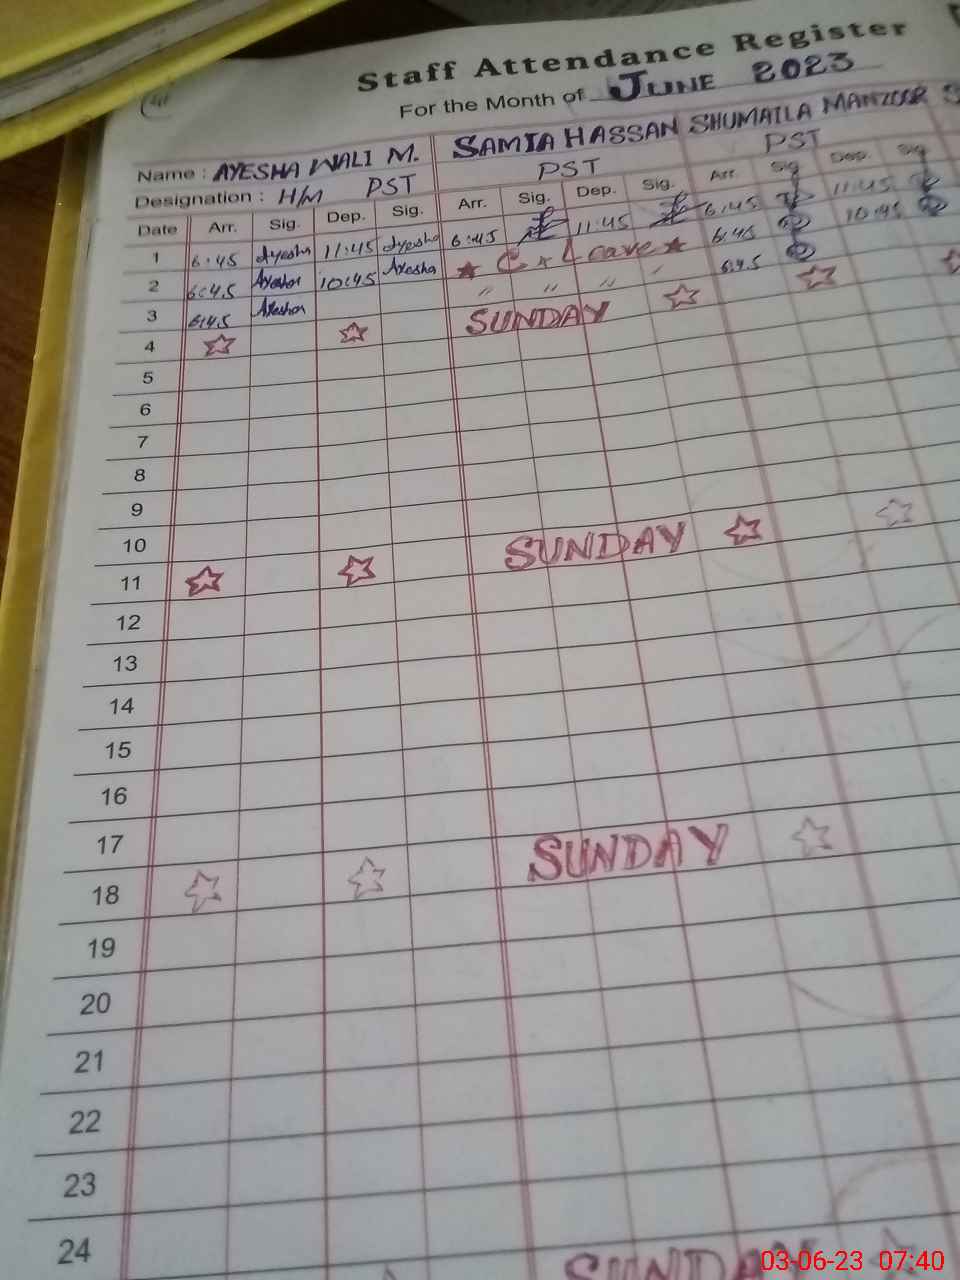 Staff Attendance Register
For the Month of JUNE 2023
Name : AYESHA WALI M. SAMIA HASSAN SHUMAILA MANZOOR S
Designation : H/M PST PST PST
Date Arr. Sig. Dep. Sig. Arr. Sig. Dep. Sig. Arr. Sig Dep. Sig
1 6:45 Ayesha 11:45 Ayesha 6:45 11:45 6:45 11:45
2 6:45 Ayesha 10:45 Ayesha C x Leave 6:45 10:45
3 6:45 Ayesha " " " " 6:45
4 SUNDAY
5
6
7
8
9
10
11 SUNDAY
12
13
14
15
16
17
18 SUNDAY
19
20
21
22
23
24
SUNDAY
03-06-23 07:40